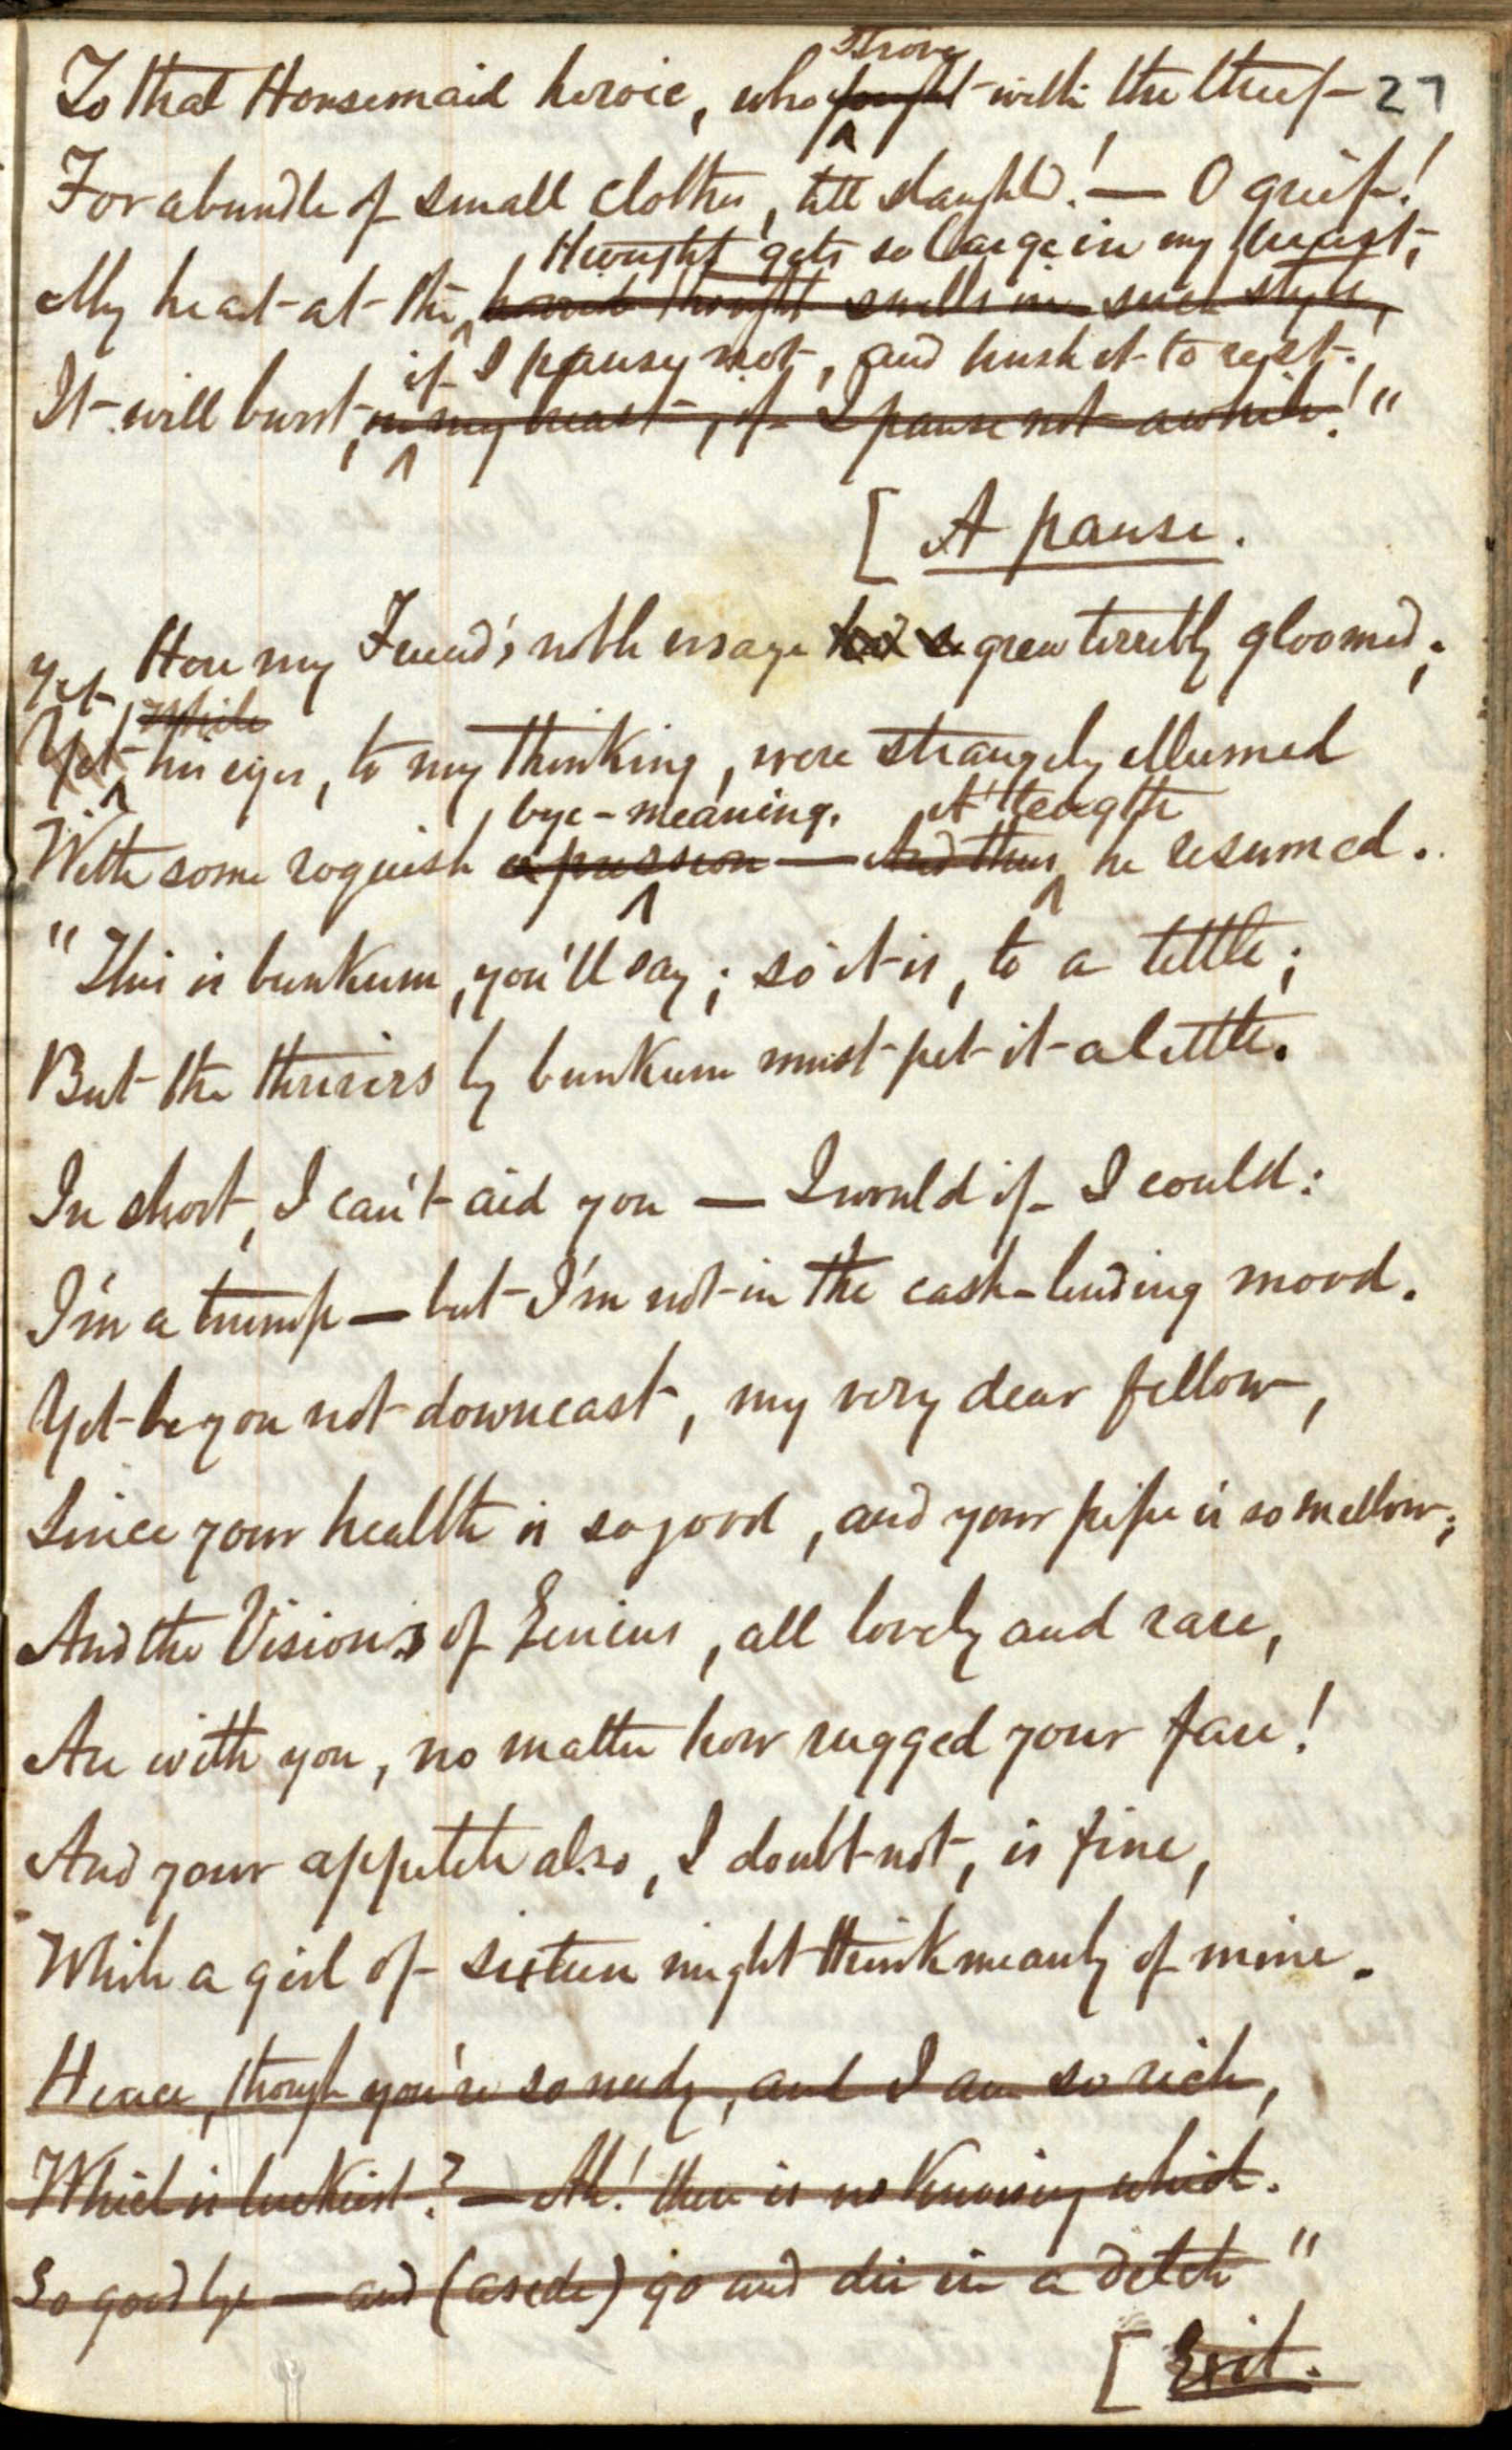 Strove
To that Housemaid heroic, who fought with the thief 27
For a bundle of small clothes, till slaught'd! — O grief!
thought gets so large in my breast,
My heart at the horrid thought swells in such style,
if I pause not, and hush it to rest.
It will burst, in my breast, if I pause not awhile!"
[ A pause.
Here my Friend's noble visage had a grew terribly gloomed;
Yet
While
Yet his eyes, to my thinking, were strangely illumed
bye-meaning. At length
With some roguish expression — And thus he resumed.
"This is bunkum, you'll say; so it is, to a tittle;
But the thrivers by bunkum must pet it a little.
In short, I can't aid you — I would if I could:
I'm a trump — but I'm not in the cash-lending mood.
Yet be you not downcast, my very dear fellow,
Since your health is so good, and your pipe is so mellow;
And the Visions of Genius, all lovely and rare,
Are with you, no matter how rugged your fare!
And your appetite also, I doubt not, is fine,
While a girl of sixteen might think meanly of mine.
Hence, though you're so needy, and I am so rich,
Which is luckiest? — Ah! there is no knowing which.
So good bye — and (aside) go and die in a ditch"
[ Exit.